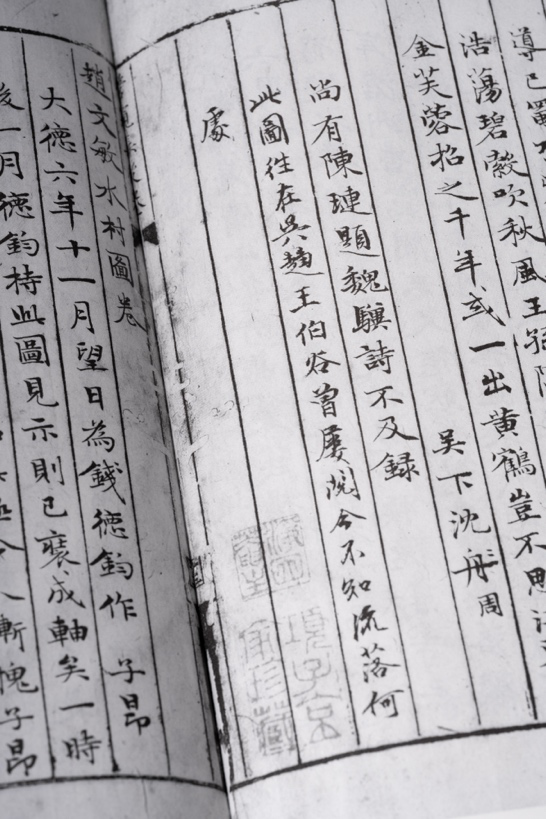 導已蜀
浩蕩碧縠吹秋風王孫
金芙蓉招之千年或一出黄鶴豈不思
吴下沈舟周
尚有陳璉題魏驥詩不及録
此圖往在吳趨王伯谷曾屢閱今不知流落何
處
趙文敏水村圖卷
大德六年十一月望日為錢德鈞作 子昂
後一月德鈞持此圖見示則已裝成軸矣一時
人漸愧子昂
項子京
家珍藏